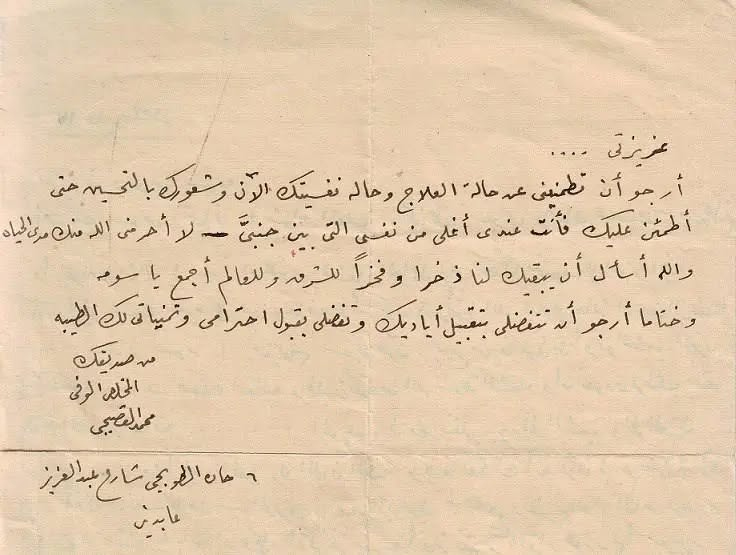 عزيزتى ....
أرجو أن تطمنينى عن حالة العلاج وحاله نفسيتك الآن وشعورك بالتحسين حتى
أطمئن عليك فأنت عندى أغلى من نفسى التى بين جنبىَّ — لا أحرمنى الله منك مدى الحياه
والله أسأل أن يبقيك لنا ذخرا وفخراً للشرق وللعالم أجمع يا سومه
وختاما أرجو أن تتفضلى بتقبيل أياديك وتفضلى بقبول احترامى وتمنياتى لك الطيبه
من صديقك
المخلص الوفى
محمد القصبجى
٦ حاره الطوبجى شارع عبد العزيز
عابدين